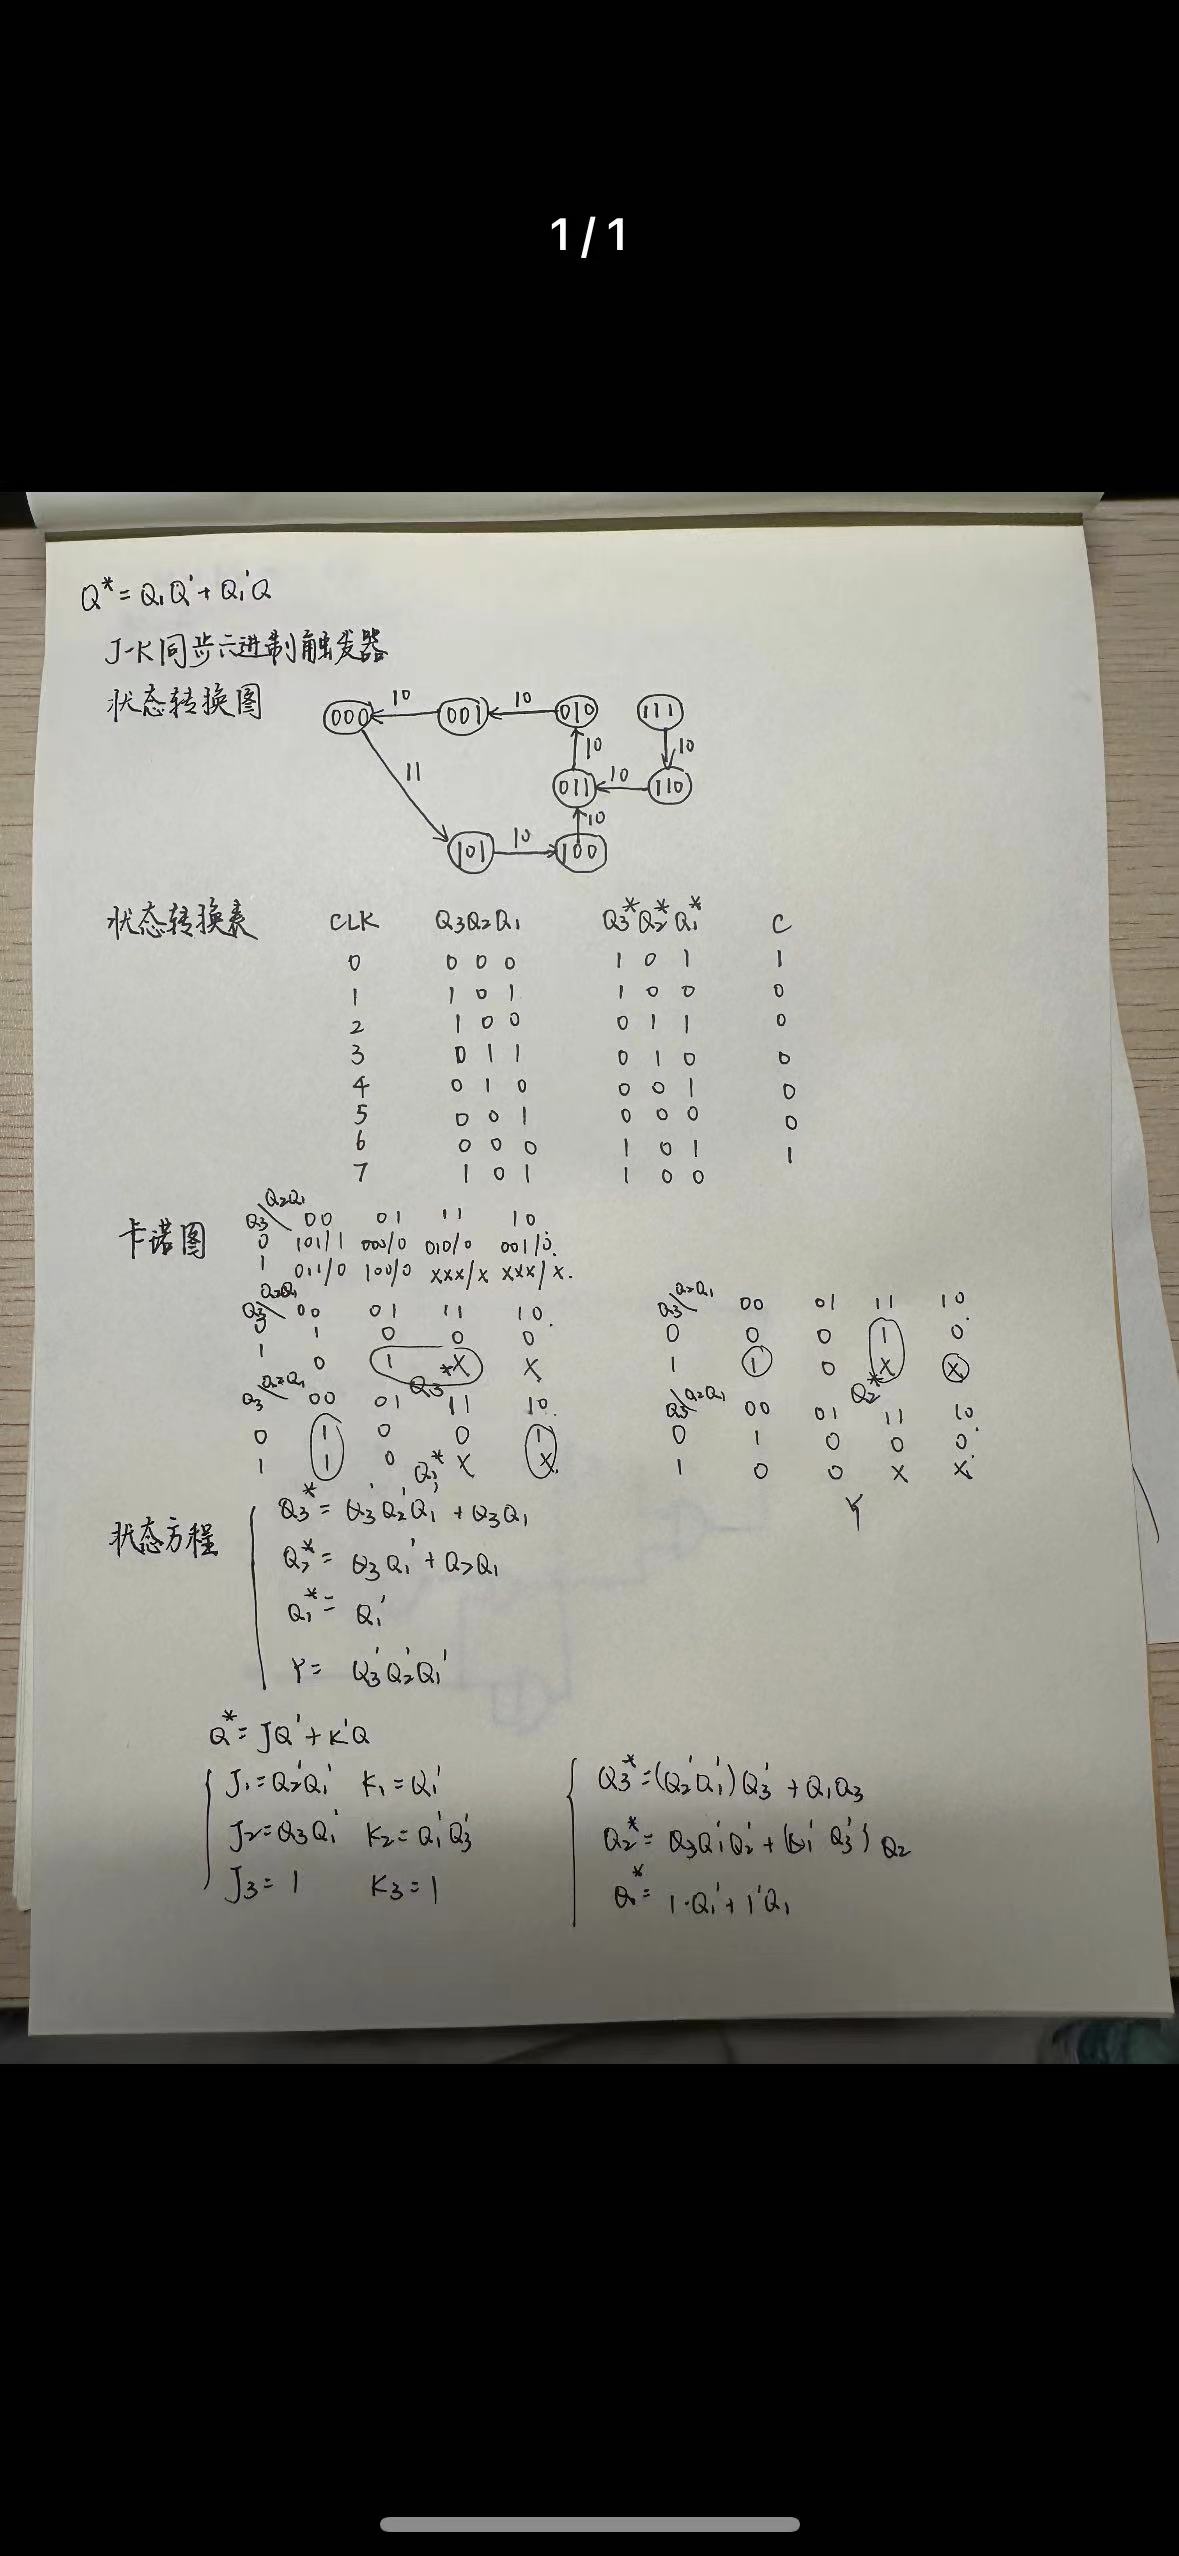 1/1
Q* = Q₁Q' + Q₁'Q
J-K同步六进制触发器
状态转换图
000 10 001 10 010 111
11 10 10
011 10 110
10
101 10 100
状态转换表 CLK Q3Q2Q1 Q3*Q2*Q1* C
0 000 101 1
1 101 100 0
2 100 011 0
3 011 010 0
4 010 001 0
5 001 000 0
6 000 101 1
7 101 100
卡诺图
Q3\Q2Q1 00 01 11 10
0 101/1 000/0 010/0 001/0
1 011/0 100/0 xxx/x xxx/x
Q3\Q2Q1 00 01 11 10
0 1 0 0 0
1 0 1 X X
Q3*
Q3\Q2Q1 00 01 11 10
0 0 0 1 0
1 1 0 X X
Q2*
Q3\Q2Q1 00 01 11 10
0 1 0 0 1
1 1 0 X X
Q3\Q2Q1 00 01 11 10
0 1 0 0 0
1 0 0 X X
Y
状态方程
Q3* = Q3'Q2'Q1' + Q3Q1
Q2* = Q3Q1' + Q2Q1
Q1* = Q1'
Y = Q3'Q2'Q1'
Q* = JQ' + K'Q
J1 = Q2'Q1' K1 = Q1'
J2 = Q3Q1' K2 = Q1'Q3'
J3 = 1 K3 = 1
Q3* = (Q2'Q1')Q3' + Q1Q3
Q2* = Q3Q1'Q2' + (Q1'Q3')'Q2
Q* = 1·Q1' + 1'Q1